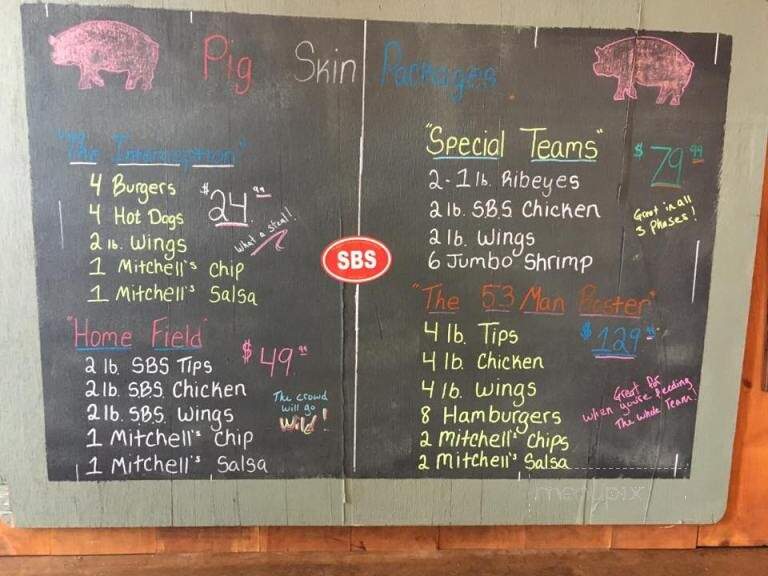 Pig Skin Packages
"The Interception"
$24.99
4 Burgers
4 Hot Dogs
2 lb. Wings
1 Mitchell's Chip
1 Mitchell's Salsa
What a steal!
"Home Field"
$49.99
2 lb. SBS Tips
2 lb. SBS Chicken
2 lb. SBS Wings
1 Mitchell's Chip
1 Mitchell's Salsa
The crowd
will go
Wild!
SBS
"Special Teams"
$79.99
2-1 lb. Ribeyes
2 lb. SBS Chicken
2 lb. Wings
6 Jumbo Shrimp
Great in all
3 Phases!
"The 53 Man Roster"
$129.99
4 lb. Tips
4 lb. Chicken
4 lb. Wings
8 Hamburgers
2 Mitchell's Chips
2 Mitchell's Salsa
Great for
when you're feeding
The whole Team!
menupix